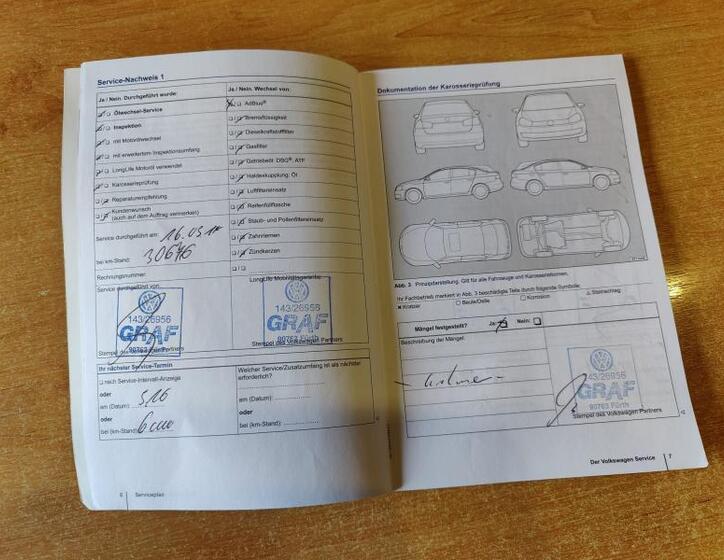 Service-Nachweis 1
Ja / Nein. Durchgeführt wurde:
Ölwechsel-Service
Inspektion
mit Motorölwechsel
mit erweitertem Inspektionsumfang
LongLife Motoröl verwendet
Karosserieprüfung
Reparaturempfehlung
Kundenwunsch
(auch auf dem Auftrag vermerken!)
Service durchgeführt am:
bei km-Stand: 30676
Rechnungsnummer:
Service durchgeführt von:
143/26956
GRAF
90763 Fürth
Stempel des Volkswagen Partners
Ja / Nein. Wechsel von:
AdBlue®
Bremsflüssigkeit
Dieselkraftstofffilter
Gasfilter
Getriebeöl: DSG®, ATF
Haldexkupplung: Öl
Luftfiltereinsatz
Reifenfüllflasche
Staub- und Pollenfiltereinsatz
Zahnriemen
Zündkerzen
LongLife Mobilitätsgarantie:
143/26956
GRAF
90763 Fürth
Stempel des Volkswagen Partners
Ihr nächster Service-Termin
nach Service-Intervall-Anzeige
oder
am (Datum): 3.16
oder
bei (km-Stand):
Welcher Service/Zusatzumfang ist als nächster
erforderlich?
am (Datum):
oder
bei (km-Stand):
6 Serviceplan
Dokumentation der Karosserieprüfung
Abb. 3 Prinzipdarstellung. Gilt für alle Fahrzeuge und Karosserieformen.
Ihr Fachbetrieb markiert in Abb. 3 beschädigte Teile durch folgende Symbole:
Kratzer Beule/Delle Korrosion Steinschlag
Mängel festgestellt? Ja: Nein:
Beschreibung der Mängel:
143/26956
GRAF
90763 Fürth
Stempel des Volkswagen Partners
Der Volkswagen Service 7